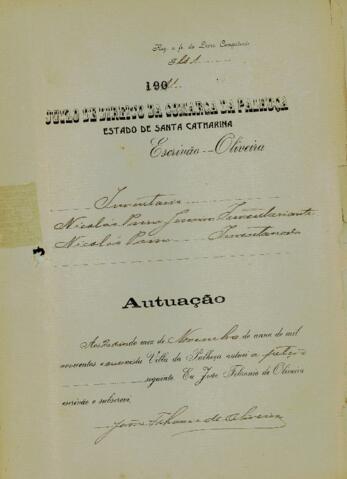 Reg. a fs. do Livro Competente
190
JUIZO DE DIREITO DA COMARCA DA PALHOÇA
ESTADO DE SANTA CATHARINA
Escrivão Oliveira
Inventario
Nicolás Inventariante
Nicolás Inventariado
Autuação
Aos dias do mez de Novembro do anno de mil
novecentos e nesta Villa da Palhoça autuei a petição
seguente. Eu João de Oliveira
escrivão o subscrevi,
João de Oliveira